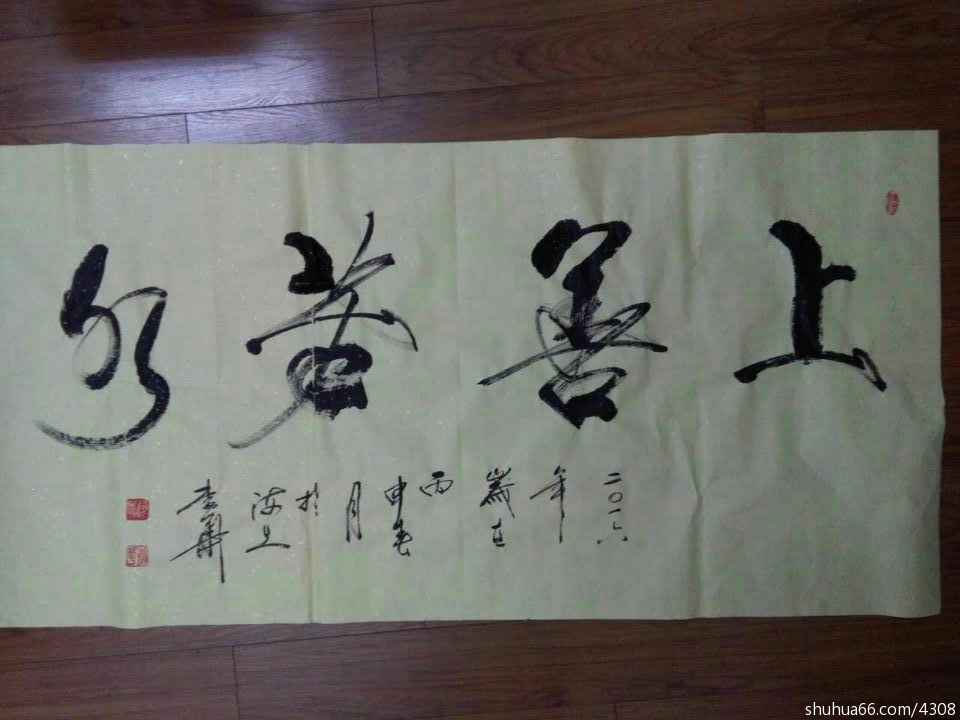 上善若水
二〇一六
年
歲在
丙
申
月
於
海上
李華
shuhua66.com/4308